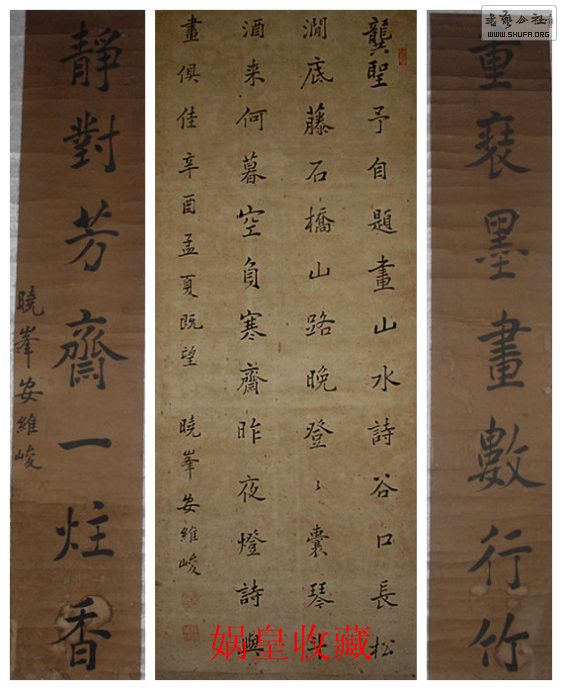 書藝公社
WWW.SHUFA.ORG
重墨畫數行竹
龔聖予自題畫山水詩谷口長松
澗底藤石橋山路晚登〻囊琴斗
酒来何暮空負寒齋昨夜燈詩與
畫俱佳辛酉孟夏既望 曉峯安維峻
靜對芳齋一炷香
曉峯安維峻
娲皇收藏